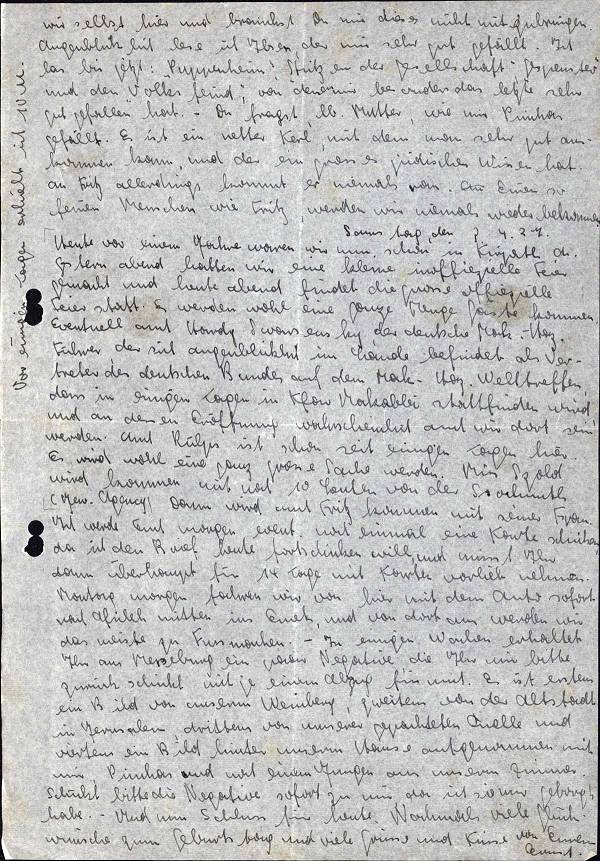 wir selbst hier und brauchst Du mir dieses nicht mitzubringen.
Augenblicklich lese ich Ibsen der mir sehr gut gefällt. Ich
las bis jetzt: Puppenheim, Stützen der Gesellschaft, Gespenster
und den Volksfeind, von denen mir besonders das letzte sehr
gut gefallen hat. - Du fragst lb. Mutter, wie mir Pinhas
gefällt. Es ist ein netter Kerl, mit dem man sehr gut aus-
kommen kann und der ein grosses jüdisches Wissen hat.
An Fritz allerdings kommt er niemals ran. Au Einen so
feinen Menschen wie Fritz, werden wir niemals wieder bekommen
Samstag, den 3.4.37.
Heute vor einem Jahre waren wir nun schon in Kirjath An.
Gestern abend hatten wir eine kleine inoffizielle Feier
gemacht und heute abend findet die grosse offizielle
Feier statt. Es werden wohl eine ganze Menge Gäste kommen.
Eventuell auch der deutsche Mak. Haz.
Führer der sich augenblicklich im Lande befindet als Ver-
treter des deutschen Bundes auf dem Mak-Haz. Welttreffen
dass in einigen Tagen in Kfar Makabbi stattfinden wird
und an dessen Eröffnung wahrscheinlich auch wir dort sein
werden. Auch ist schon seit einigen Tagen hier
Es wird wohl eine ganz grosse Sache werden. Miss Szold
wird kommen mit noch 10 Leuten von der Sochnuth
(Jew. Agency) Dann wird auch Fritz kommen mit seiner Frau.
Ich werde Euch morgen event. noch einmal eine Karte schreiben
da ich den Brief heute fortschicken will und müsst Ihr
dann überhaupt für 14 Tage mit Karten vorlieb nehmen.
Montag morgen fahren wir von hier mit dem Auto sofort
nach Afuleh mitten ins Emek, und von dort aus werden wir
das meiste zu Fuss machen. - In einigen Wochen erhaltet
Ihr aus Merseburg ein paar Negative, die Ihr mir bitte
zurück schickt mit je einem Abzug für mich. Es ist erstens
ein Bild von unserem Weinberg, zweitens von der Altstadt
in Jerusalem, drittens von unserer gepachteten Quelle und
viertens ein Bild hinter unserm Hause aufgenommen mit
mir, Pinhas und noch einem Jungen aus unserm Zimmer.
Schickt bitte die Negative sofort zu mir da ich sie nur geborgt
habe. - Und nun Schluss für heute. Nochmals viele Glück-
wünsche zum Geburtstag und viele Grüsse und Küsse von Eurem
Ernst.
Vor einigen Tagen erhielt ich 10 M.